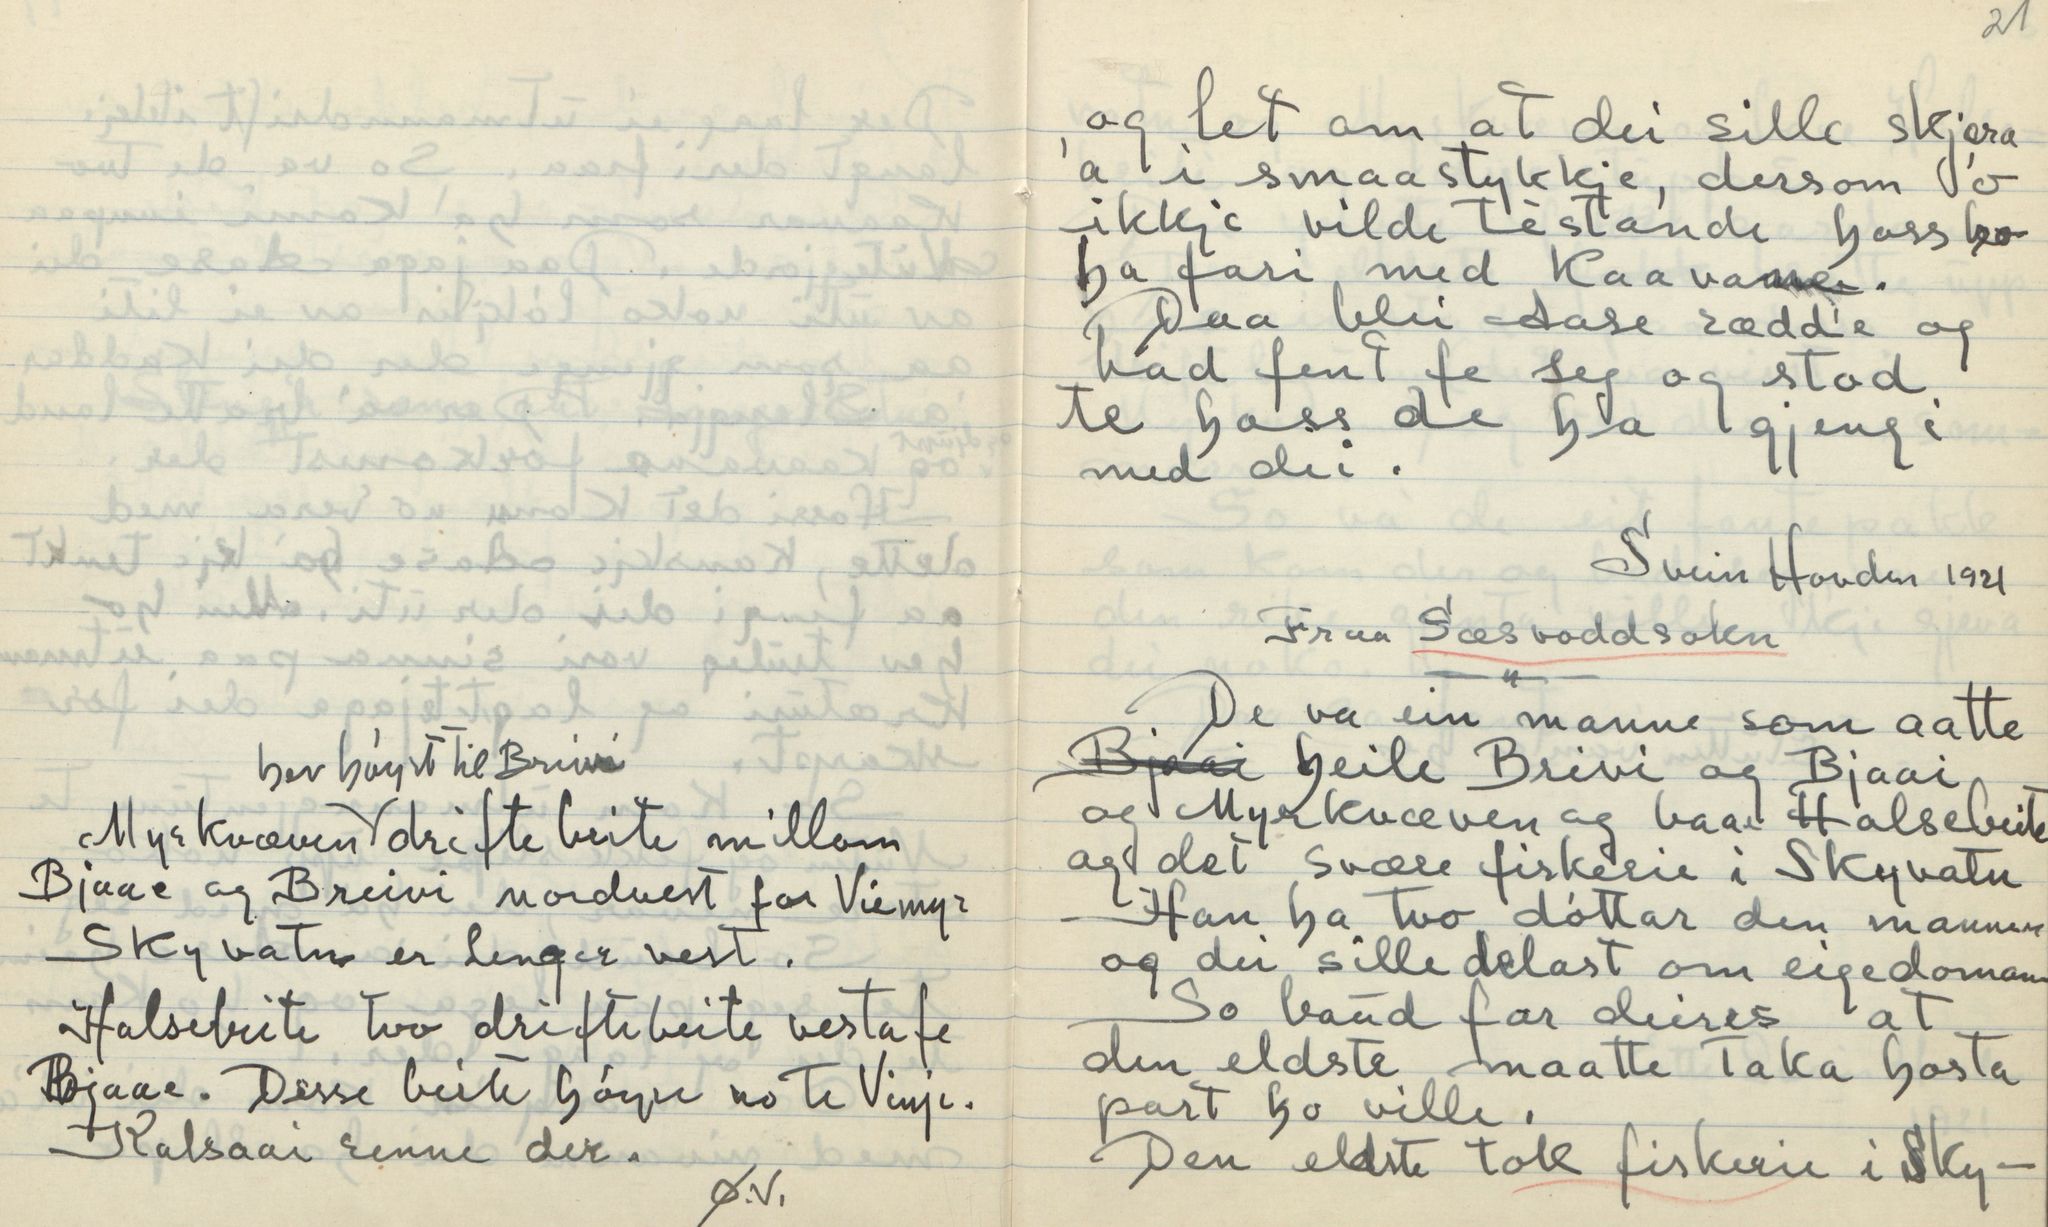 her høyrt til Breivi
Myrkvæven driftebeite millom
Bjaae og Breivi nordvest for Viemyr
Skyvatn er lenger vest.
Halsebeite two driftebeite vestafe
Bjaae. Desse beite høyre no te Vinje.
Kalsaai renne der.
Ø.V.
21
og let om at dei sille skjera
a i smaastykkje, dersom 'o
ikkje vilde testande hoss ho
ha fari med Kaavane.
Daa blei Aase rædd'e og
bad fent fe seg og stod
te hoss de ha gjengi
med dei.
Svein Hovden 1921
Fraa Sæsvoddsokn
De va ein manne som aatte
Bjaai heile Breivi og Bjaai
og Myrkvæven og baae Halsebeite
og det svære fiskerie i Skyvatn
Han ha two dóttar den mannen
og dei sille delast om eigedomann
So baud far deires at
den eldste maatte taka hosta
part ho ville.
Den eldste tok fiskerie i Sky-